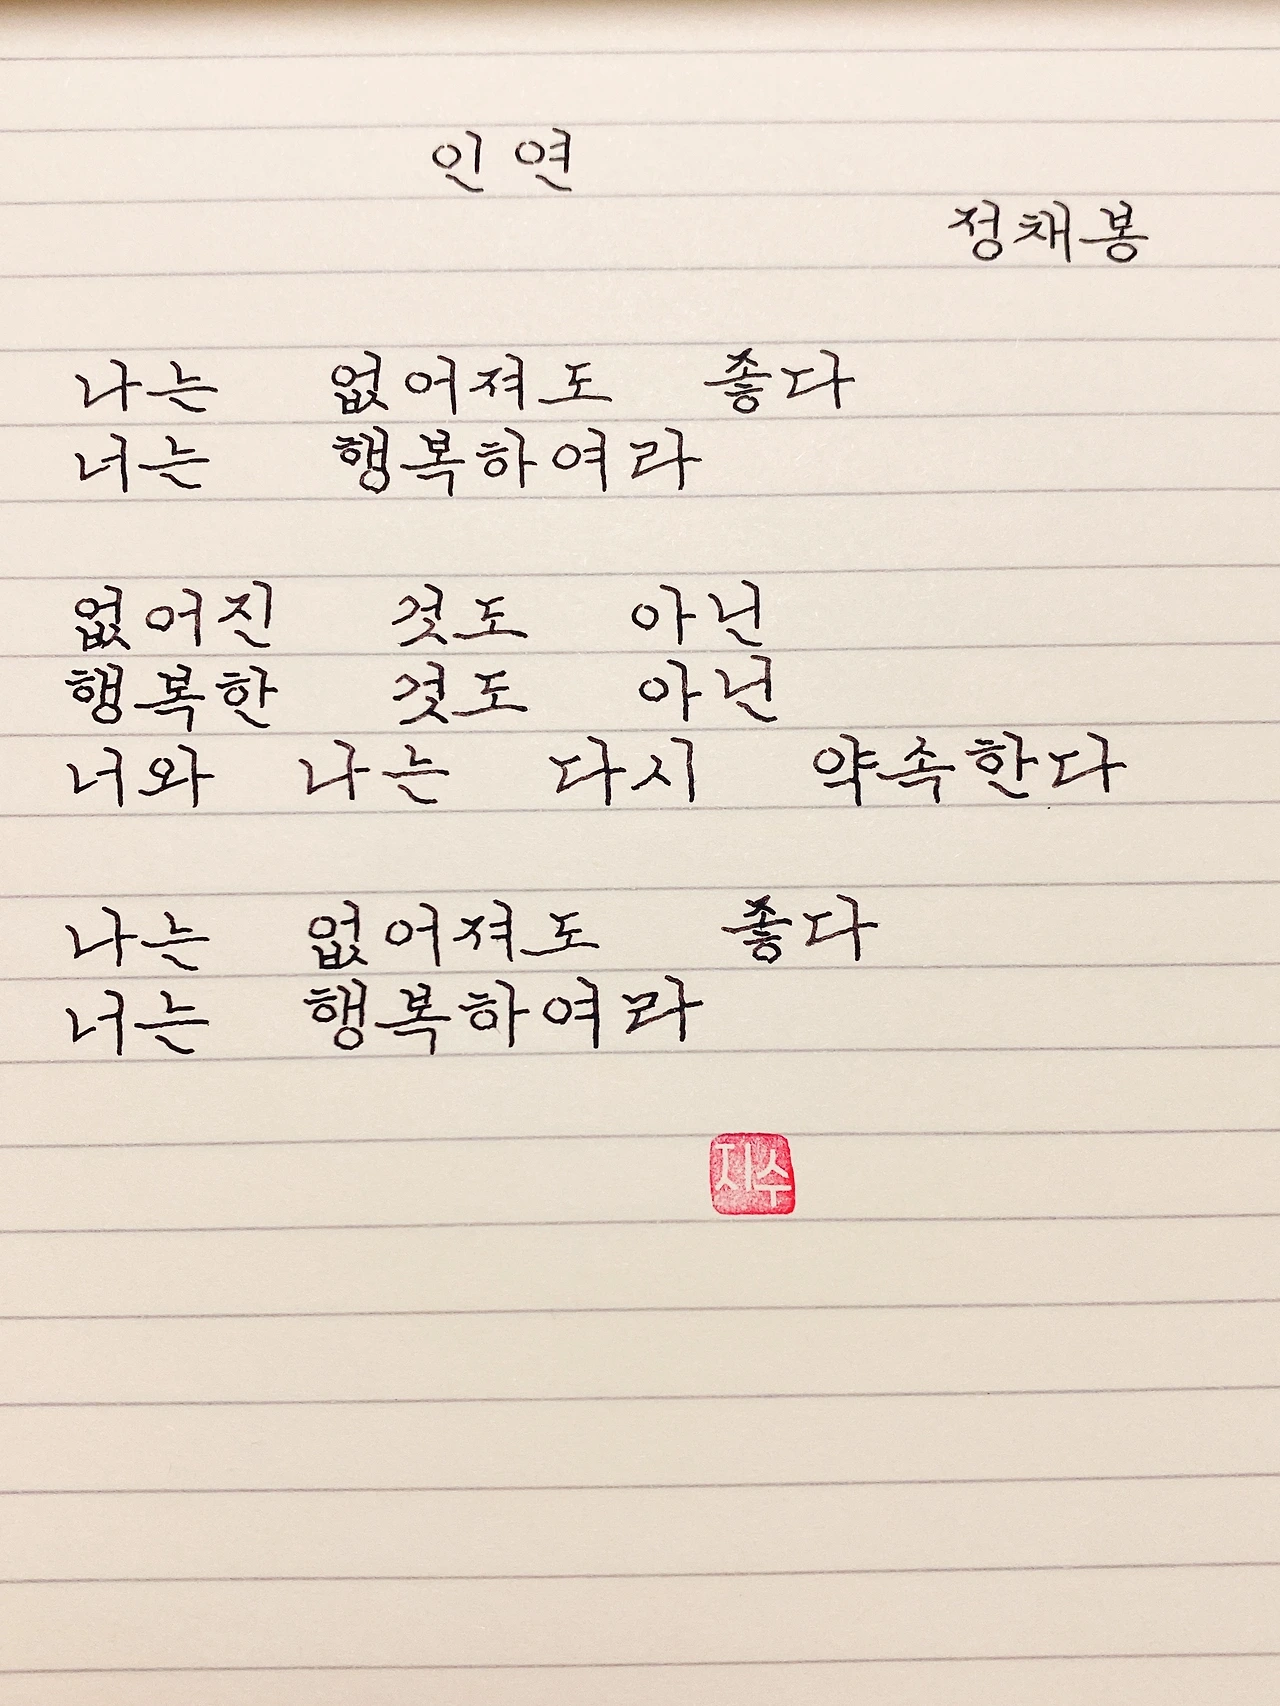 인연
정채봉
나는 없어져도 좋다
너는 행복하여라
없어진 것도 아닌
행복한 것도 아닌
너와 나는 다시 약속한다
나는 없어져도 좋다
너는 행복하여라
지수